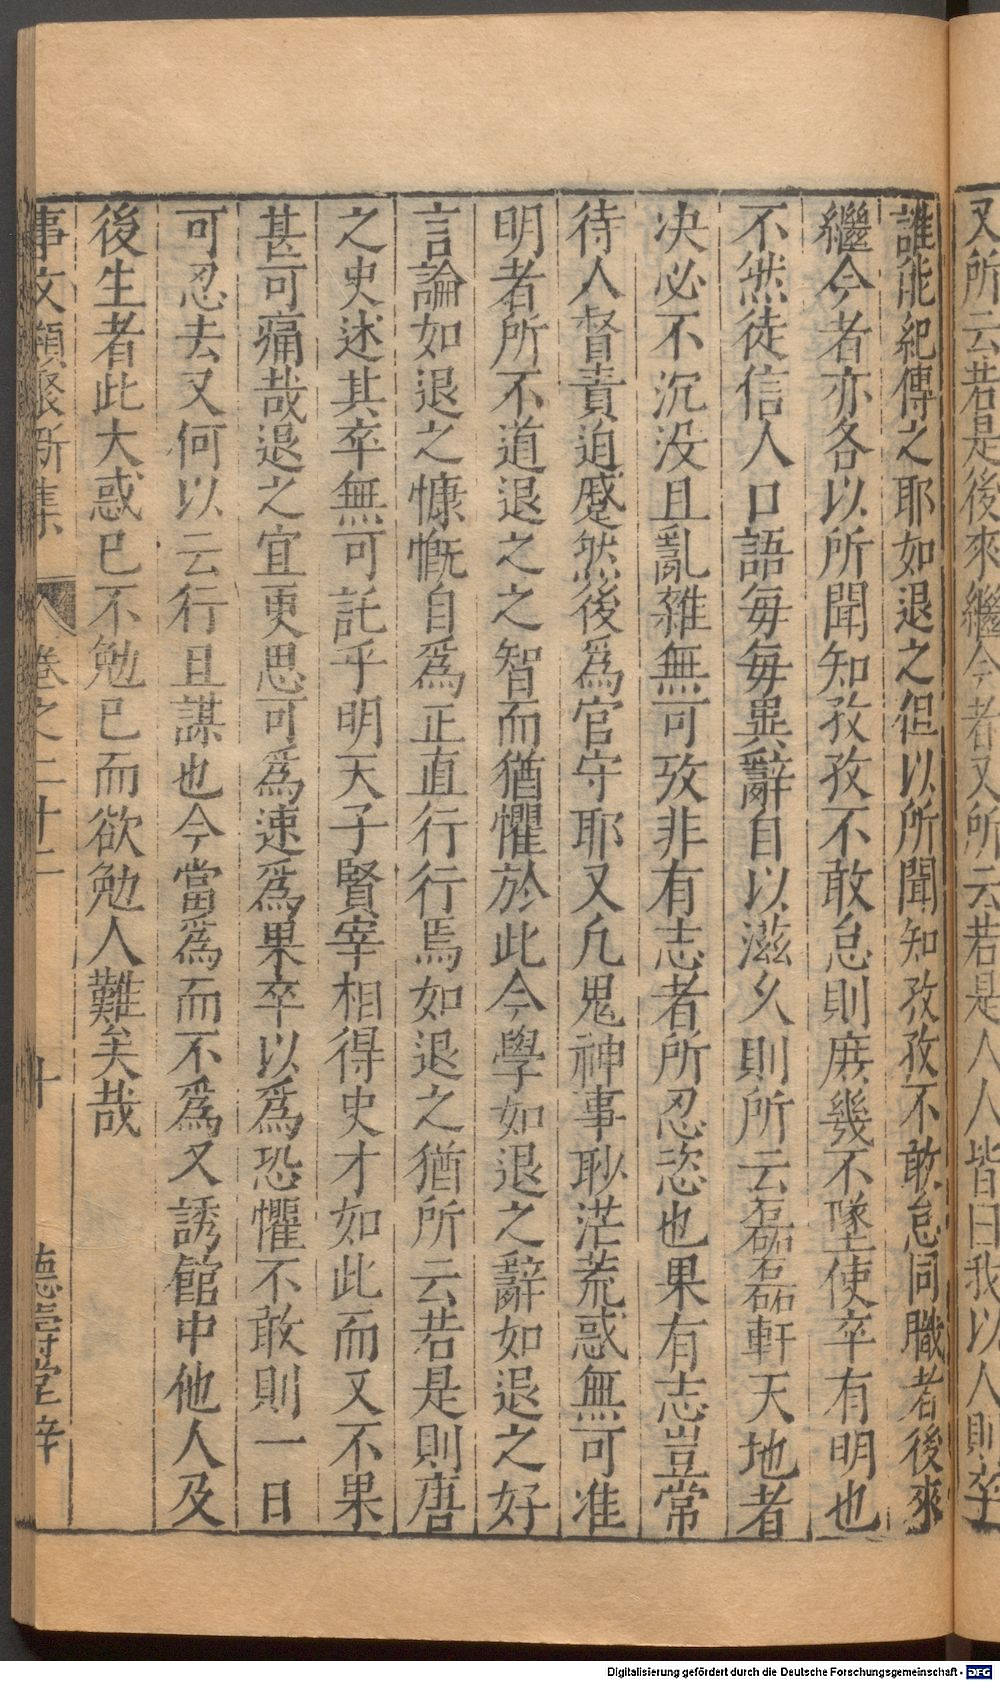 又所云若是後來繼今者又所云若是人人皆曰我以人則卒
誰能紀傳之耶如退之但以所聞知孜孜不敢怠同職者後來
繼今者亦各以所聞知孜孜不敢怠則庶幾不墜使卒有明也
不然徒信人口語每每異辭自以滋久則所云磊磊軒天地者
决必不沉没且亂雜無可攷非有志者所忍恣也果有志豈常
待人督責迫蹙然後爲官守耶又凡鬼神事眇茫荒惑無可准
明者所不道退之之智而猶懼於此今學如退之辭如退之好
言論如退之慷慨自爲正直行行焉如退之猶所云若是則唐
之史述其卒無可託乎明天子賢宰相得史才如此而又不果
甚可痛哉退之宜更思可爲速爲果卒以爲恐懼不敢則一日
可忍去又何以云行且謀也今當爲而不爲又誘館中他人及
後生者此大惑已不勉已而欲勉人難矣哉
事文類聚新集 卷之二十二 十 德壽堂梓
Digitalisierung gefördert durch die Deutsche Forschungsgemeinschaft - DFG